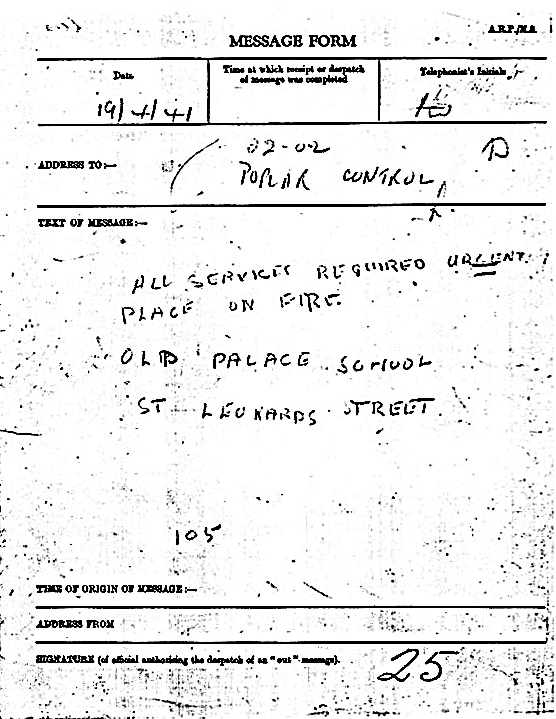 A.R.P./M.2.
MESSAGE FORM
Date
Time at which receipt or despatch of message was completed
Telephonist's Initials
19/4/41
02-02
ADDRESS TO:—
POPLAR CONTROL
TEXT OF MESSAGE:—
ALL SERVICES REQUIRED URGENT
PLACE ON FIRE.
OLD PALACE SCHOOL
ST LEONARDS STREET.
105
TIME OF ORIGIN OF MESSAGE:—
ADDRESS FROM
SIGNATURE (of official authorising the despatch of an "out" message).
25